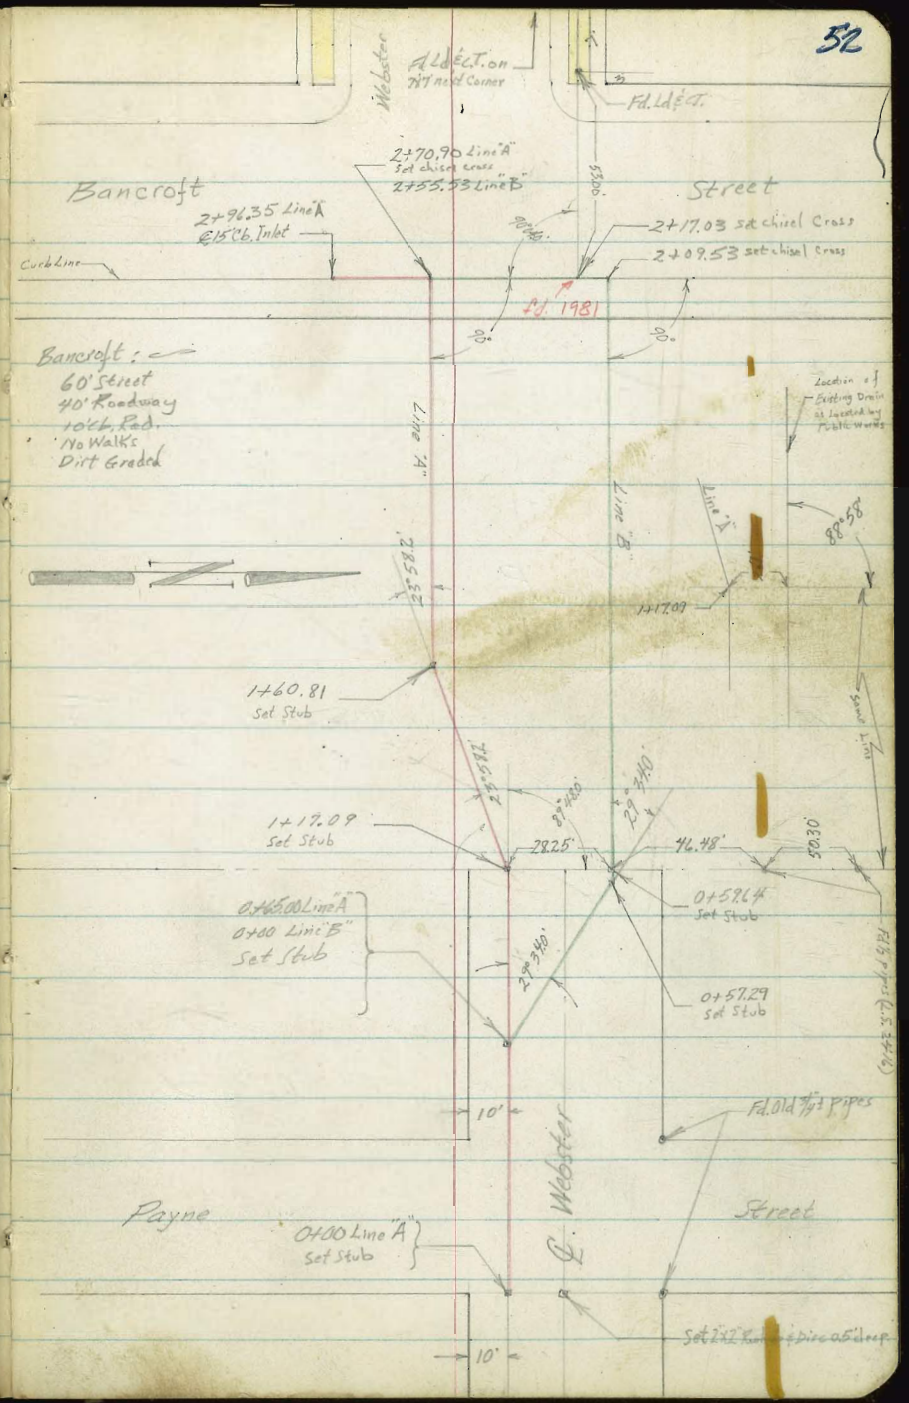 52
Webster
Fd. Ld & T. on
7'x7' next Corner
Fd. Ld & T.
Bancroft
Street
2+70.90 Line "A"
Set chisel cross
2+55.53 Line "B"
2+96.35 Line "A"
15' Cb. Inlet
53.00'
2+17.03 set chisel Cross
2+09.53 set chisel Cross
Curb Line
fd. 1981
90°
90°
Bancroft:
60' Street
40' Roadway
10' cb. Rad.
No Walks
Dirt Graded
Location of
Existing Drain
as Located by
Public Works
Line "A"
Line "B"
Line "A"
88°58'
23°58½'
1+17.09
1+60.81
Set Stub
Same Line
23°58½'
89°48.0'
29°34.0'
1+17.09
Set Stub
28.25'
46.48'
50.30'
0+65.00 Line "A"
0+00 Line "B"
Set Stub
0+59.64
Set Stub
29°34.0'
0+57.29
Set Stub
10'
Fd. Old 3/4" pipes
℄ Webster
Payne
Street
0+00 Line "A"
Set Stub
Set 2"x2" & Disc 0.5' deep
10'